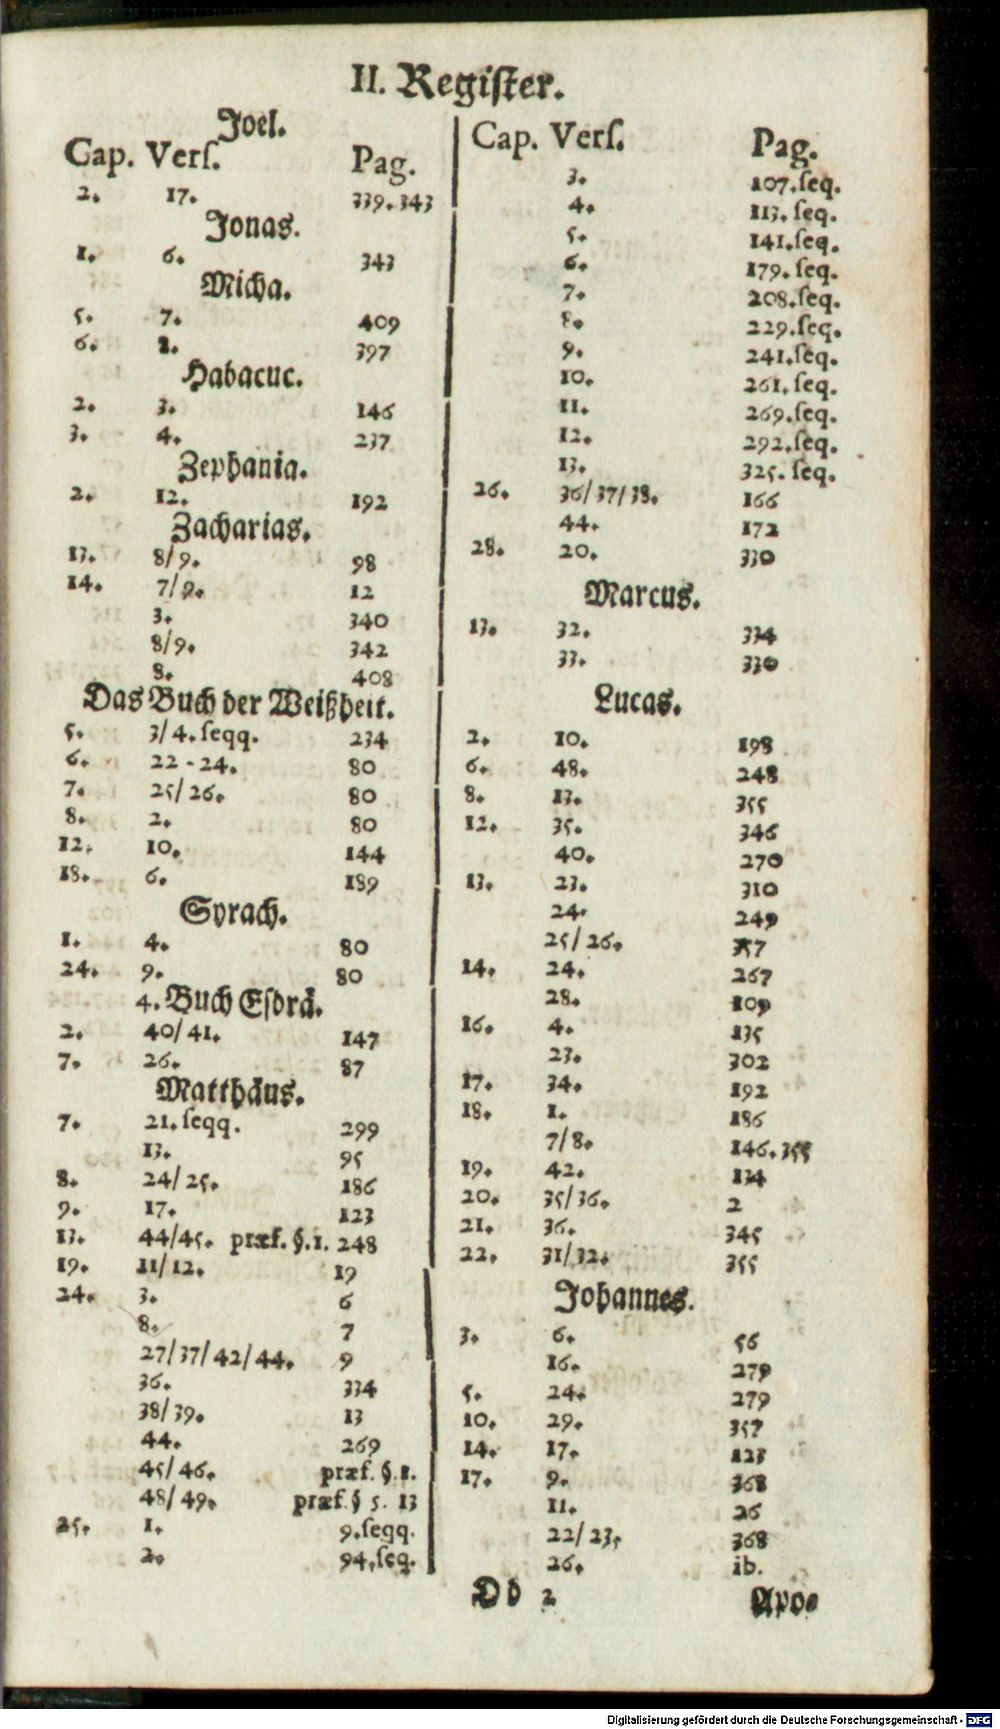 II. Regiſter.
Joel.
Cap. Verſ. Pag.
2. 17. 339. 343
Jonas.
1. 6. 343
Micha.
5. 7. 409
6. 8. 397
Habacuc.
2. 3. 146
3. 4. 237
Zephania.
2. 12. 192
Zacharias.
13. 8/9. 98
14. 7/9. 12
3. 340
8/9. 342
8. 408
Das Buch der Weißheit.
5. 3/4. ſeqq. 234
6. 22-24. 80
7. 25/26. 80
8. 2. 80
12. 10. 144
18. 6. 189
Syrach.
1. 4. 80
24. 9. 80
4. Buch Eſdrä.
2. 40/41. 147
7. 26. 87
Matthäus.
7. 21. ſeqq. 299
13. 95
8. 24/25. 186
9. 17. 123
13. 44/45. præf. §. 1. 248
19. 11/12. 19
24. 3. 6
8. 7
27/37/42/44. 9
36. 334
38/39. 13
44. 269
45/46. præf. §. 1.
48/49. præf. § 5. 13
25. 1. 9. ſeqq.
2. 94. ſeq.
Cap. Verſ. Pag.
3. 107. ſeq.
4. 113. ſeq.
5. 141. ſeq.
6. 179. ſeq.
7. 208. ſeq.
8. 229. ſeq.
9. 241. ſeq.
10. 261. ſeq.
11. 269. ſeq.
12. 292. ſeq.
13. 325. ſeq.
26. 36/37/38. 166
44. 172
28. 20. 330
Marcus.
13. 32. 334
33. 330
Lucas.
2. 10. 198
6. 48. 248
8. 13. 355
12. 35. 346
40. 270
13. 23. 310
24. 249
25/26.
14. 24. 267
28. 109
16. 4. 135
23. 302
17. 34. 192
18. 1. 186
7/8. 146. 355
19. 42. 134
20. 35/36. 2
21. 36. 345
22. 31/32. 355
Johannes.
3. 6. 56
16. 279
5. 24. 279
10. 29. 357
14. 17. 123
17. 9. 368
11. 26
22/23. 368
26. ib.
Dd 2 Apo-
Digitalisierung gefördert durch die Deutsche Forschungsgemeinschaft - DFG